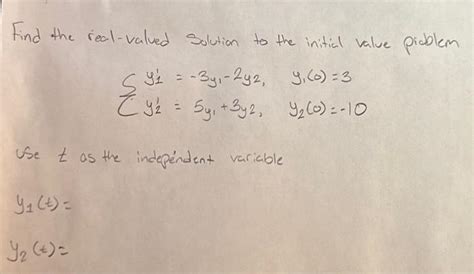 Find the real-valued Solution to the initial value problem
{ y'1 = -3y1-2y2, y1(0)=3
y'2 = 5y1+3y2, y2(0)=-10
use t as the independent variable
y1(t)=
y2(t)=